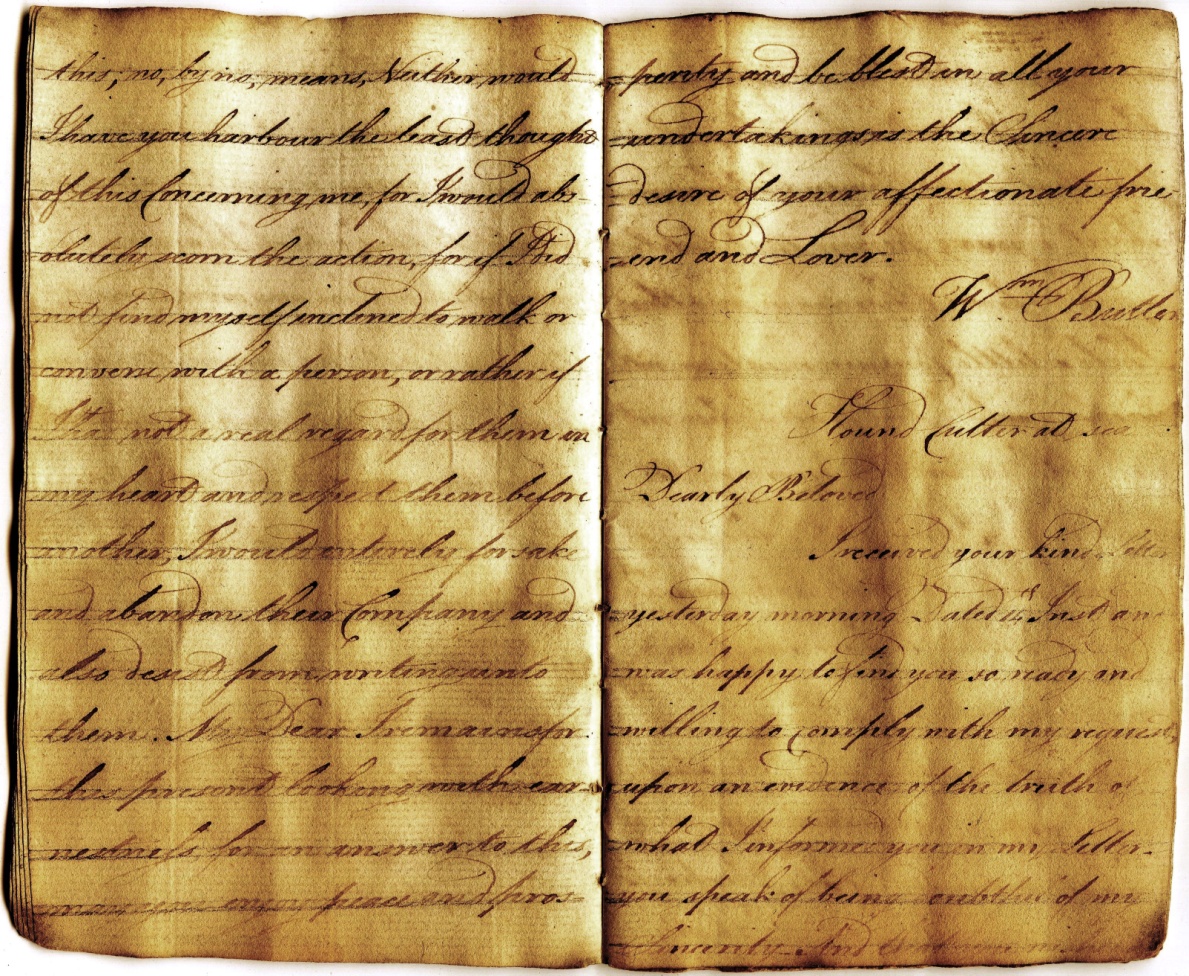 this, no, by no, means, Neither would
I have you harbour the least thought
of this Concerning me, for I would abs-
olutely scorn the action, for if I did
not find myself inclined to walk or
converse with a person, or rather if
I had not a real regard for them in
my heart and respect them before
another, I would entirely forsake
and abandon their Company and
also desist from writing unto
them. My Dear I remains for
this present looking with ear-
nestness for an answer to this,
may you enjoy peace and pros-
perity and be blest in all your
undertakings is the Sincere
desire of your affectionate fri-
end and Lover.
Wm Butler
Hound Cutter at sea
Dearly Beloved
I received your kind Letter
yesterday morning Dated Inst an
was happy to find you so ready and
willing to comply with my request,
upon an evidence of the truth of
what I informed you in my Letter.
you speak of being doubtful of my
Sincerity And